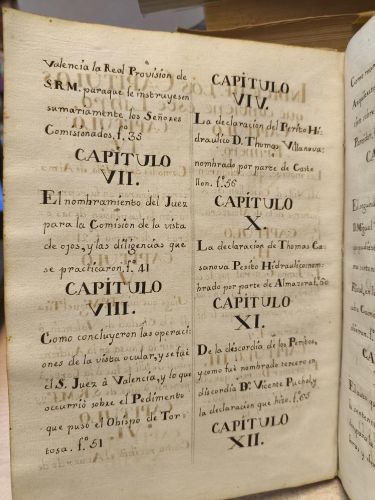 Valencia la Real Provision de
S.R.M. paraque le instruyesen
sumariamente los Señores
Comisionados. fº 35
CAPÍTULO
VII.
El nombramiento del Juez
para la Comisión de la vista
de ojos, y las diligencias que
se practicaron, fº 41
CAPÍTULO
VIII.
Como concluyeron las operaci-
ones de la vista ocular, y se fué
el S. Juez à Valencia, y lo que
ocurrió sobre el Pedimento
que pusó el Obispo de Tor-
tosa. fº 51
CAPÍTULO
VIV.
La declaración del Perito Hi-
draulico D. Thomas Villanova:
nombrado por parte de Caste
llon. fº 56
CAPÍTULO
X
La declaracion de Thomas Ca-
sanova Perito Hidraulico: nom-
brado por parte de Almazora, fº 60
CAPÍTULO
XI.
De la discordia de los Peritos,
y como fué nombrado tercero en
discordia Dº Vicente Pachol, y
la declaracion que hizo. fº 65
CAPÍTULO
XII.